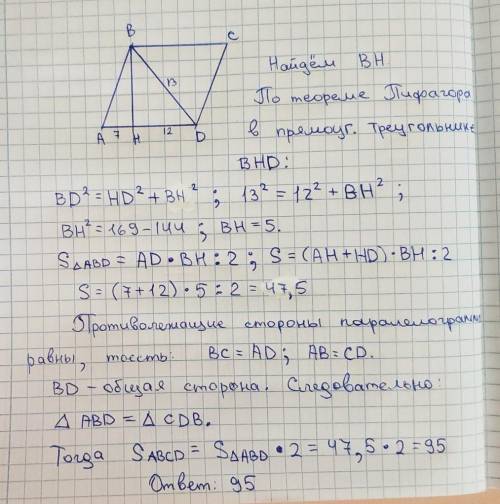 B
C
Найдём BH
13
По теореме Пифагора
A 7 H 12 D
в прямоуг. треугольнике
BHD:
BD² = HD² + BH² ; 13² = 12² + BH² ;
BH² = 169 - 144 ; BH = 5.
S△ABD = AD • BH : 2 ; S = (AH + HD) • BH : 2
S = (7 + 12) • 5 : 2 = 47,5
Противолежащие стороны паралелограмм
равны, тоесть: BC = AD ; AB = CD.
BD - общая сторона. Следовательно:
△ ABD = △ CDB.
Тогда SABCD = S△ABD • 2 = 47,5 • 2 = 95
Ответ: 95